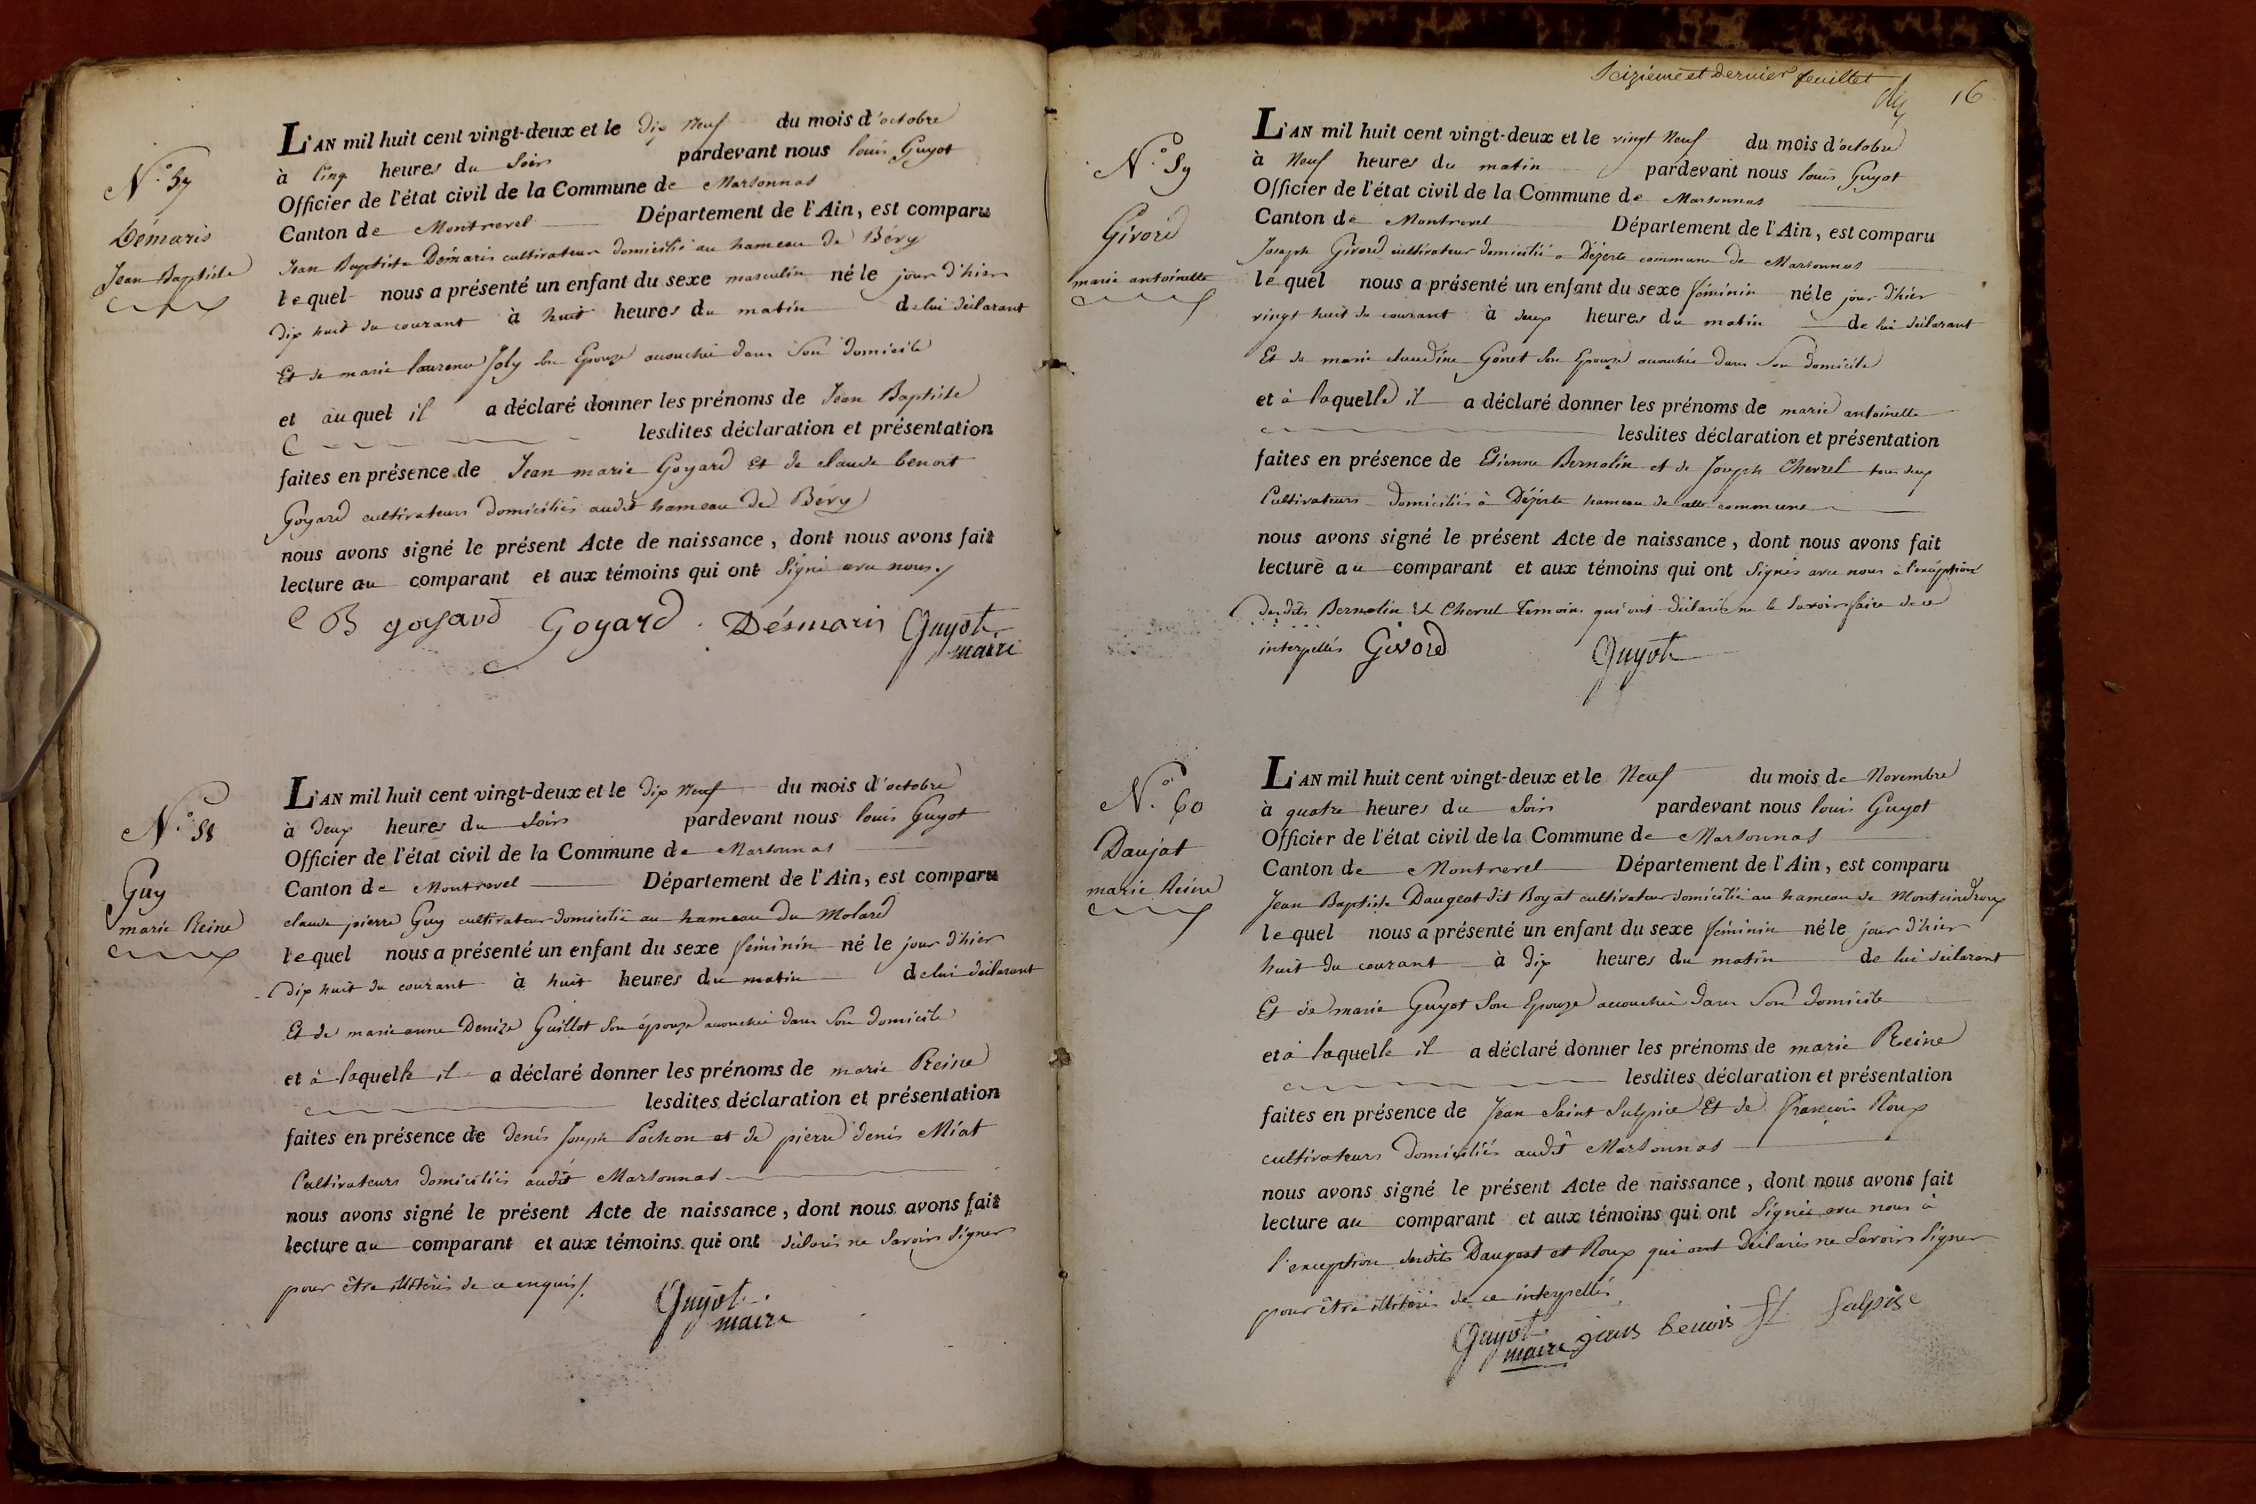 N.º 57
Démaris
Jean Baptiste
L'AN mil huit cent vingt-deux et le dix neuf du mois d'octobre
à Cinq heures du Soir pardevant nous louis Guyot
Officier de l'état civil de la Commune de Marsonnas
Canton de Montrevel Département de l'Ain, est comparu
Jean Baptiste Démaris cultivateur domicilié au hameau de Bévy
lequel nous a présenté un enfant du sexe masculin né le jour d'hier
dix huit du courant à huit heures du matin de lui déclarant
Et de marie laurence Joly son Epouze accouchée dans Son domicile
et auquel il a déclaré donner les prénoms de Jean Baptiste
lesdites déclaration et présentation
faites en présence de Jean marie Goyard Et de claude benoit
Goyard cultivateurs domiciliés audit hameau de Bévy
nous avons signé le présent Acte de naissance, dont nous avons fait
lecture au comparant et aux témoins qui ont Signé avec nous.
C B goyard Goyard Désmaris Guyot
maire
N.º 58
Guy
marie Reine
L'AN mil huit cent vingt-deux et le dix neuf du mois d'octobre
à deux heures du Soir pardevant nous louis Guyot
Officier de l'état civil de la Commune de Marsonnas
Canton de Montrevel Département de l'Ain, est comparu
claude pierre Guy cultivateur domicilié au hameau du Molard
lequel nous a présenté un enfant du sexe féminin né le jour d'hier
dix huit du courant à huit heures du matin de lui déclarant
Et de marie anne Denize Guillot son épouze accouchée dans Son domicile
et à laquelle il a déclaré donner les prénoms de marie Reine
lesdites déclaration et présentation
faites en présence de denis Joseph Pochon et de pierre denis Miat
Cultivateurs domiciliés audit Marsonnas
nous avons signé le présent Acte de naissance, dont nous avons fait
lecture au comparant et aux témoins qui ont déclarés ne Savoir Signer
pour être illitérés de ce enquis.
Guyot
maire
Seizième et dernier feuillet
16
N.º 59
Givord
marie antoinette
L'AN mil huit cent vingt-deux et le vingt Neuf du mois d'octobre
à Neuf heures du matin pardevant nous louis Guyot
Officier de l'état civil de la Commune de Marsonnas
Canton de Montrevel Département de l'Ain, est comparu
Joseph Givord cultivateur domicilié à Dézerte commune de Marsonnas
lequel nous a présenté un enfant du sexe féminin né le jour d'hier
vingt huit du courant à deux heures du matin de lui déclarant
Et de marie claudine Gonet Son Epouze accouchée dans Son domicile
et à laquelle il a déclaré donner les prénoms de marie antoinette
lesdites déclaration et présentation
faites en présence de Etienne Bernolin et de Joseph Chevrel tous deux
Cultivateurs domiciliés à Dézerte hameau de cette commune
nous avons signé le présent Acte de naissance, dont nous avons fait
lecture au comparant et aux témoins qui ont Signés avec nous à l'exception
desdits Bernolin Et Chevrel Temoins qui ont déclarés ne le Savoir faire de ce
interpellés Givord Guyot
N.º 60
Daujat
marie Reine
L'AN mil huit cent vingt-deux et le Neuf du mois de Novembre
à quatre heures du Soir pardevant nous louis Guyot
Officier de l'état civil de la Commune de Marsonnas
Canton de Montrevel Département de l'Ain, est comparu
Jean Baptiste Daugeat dit Boyat cultivateur domicilié au hameau de Montcindroux
lequel nous a présenté un enfant du sexe féminin né le jour d'hier
huit du courant à dix heures du matin de lui déclarant
Et de marie Guyot Son Epouze accouchée dans Son domicile
et à laquelle il a déclaré donner les prénoms de marie Reine
lesdites déclaration et présentation
faites en présence de Jean Saint Sulpice Et de françois Roux
cultivateurs domiciliés audit Marsonnas
nous avons signé le présent Acte de naissance, dont nous avons fait
lecture au comparant et aux témoins qui ont Signés avec nous à
l'exception desdits Daugeat et Roux qui ont déclarés ne Savoir Signer
pour être illitérés de ce interpellés
Guyot
maire jean benois St Sulpise